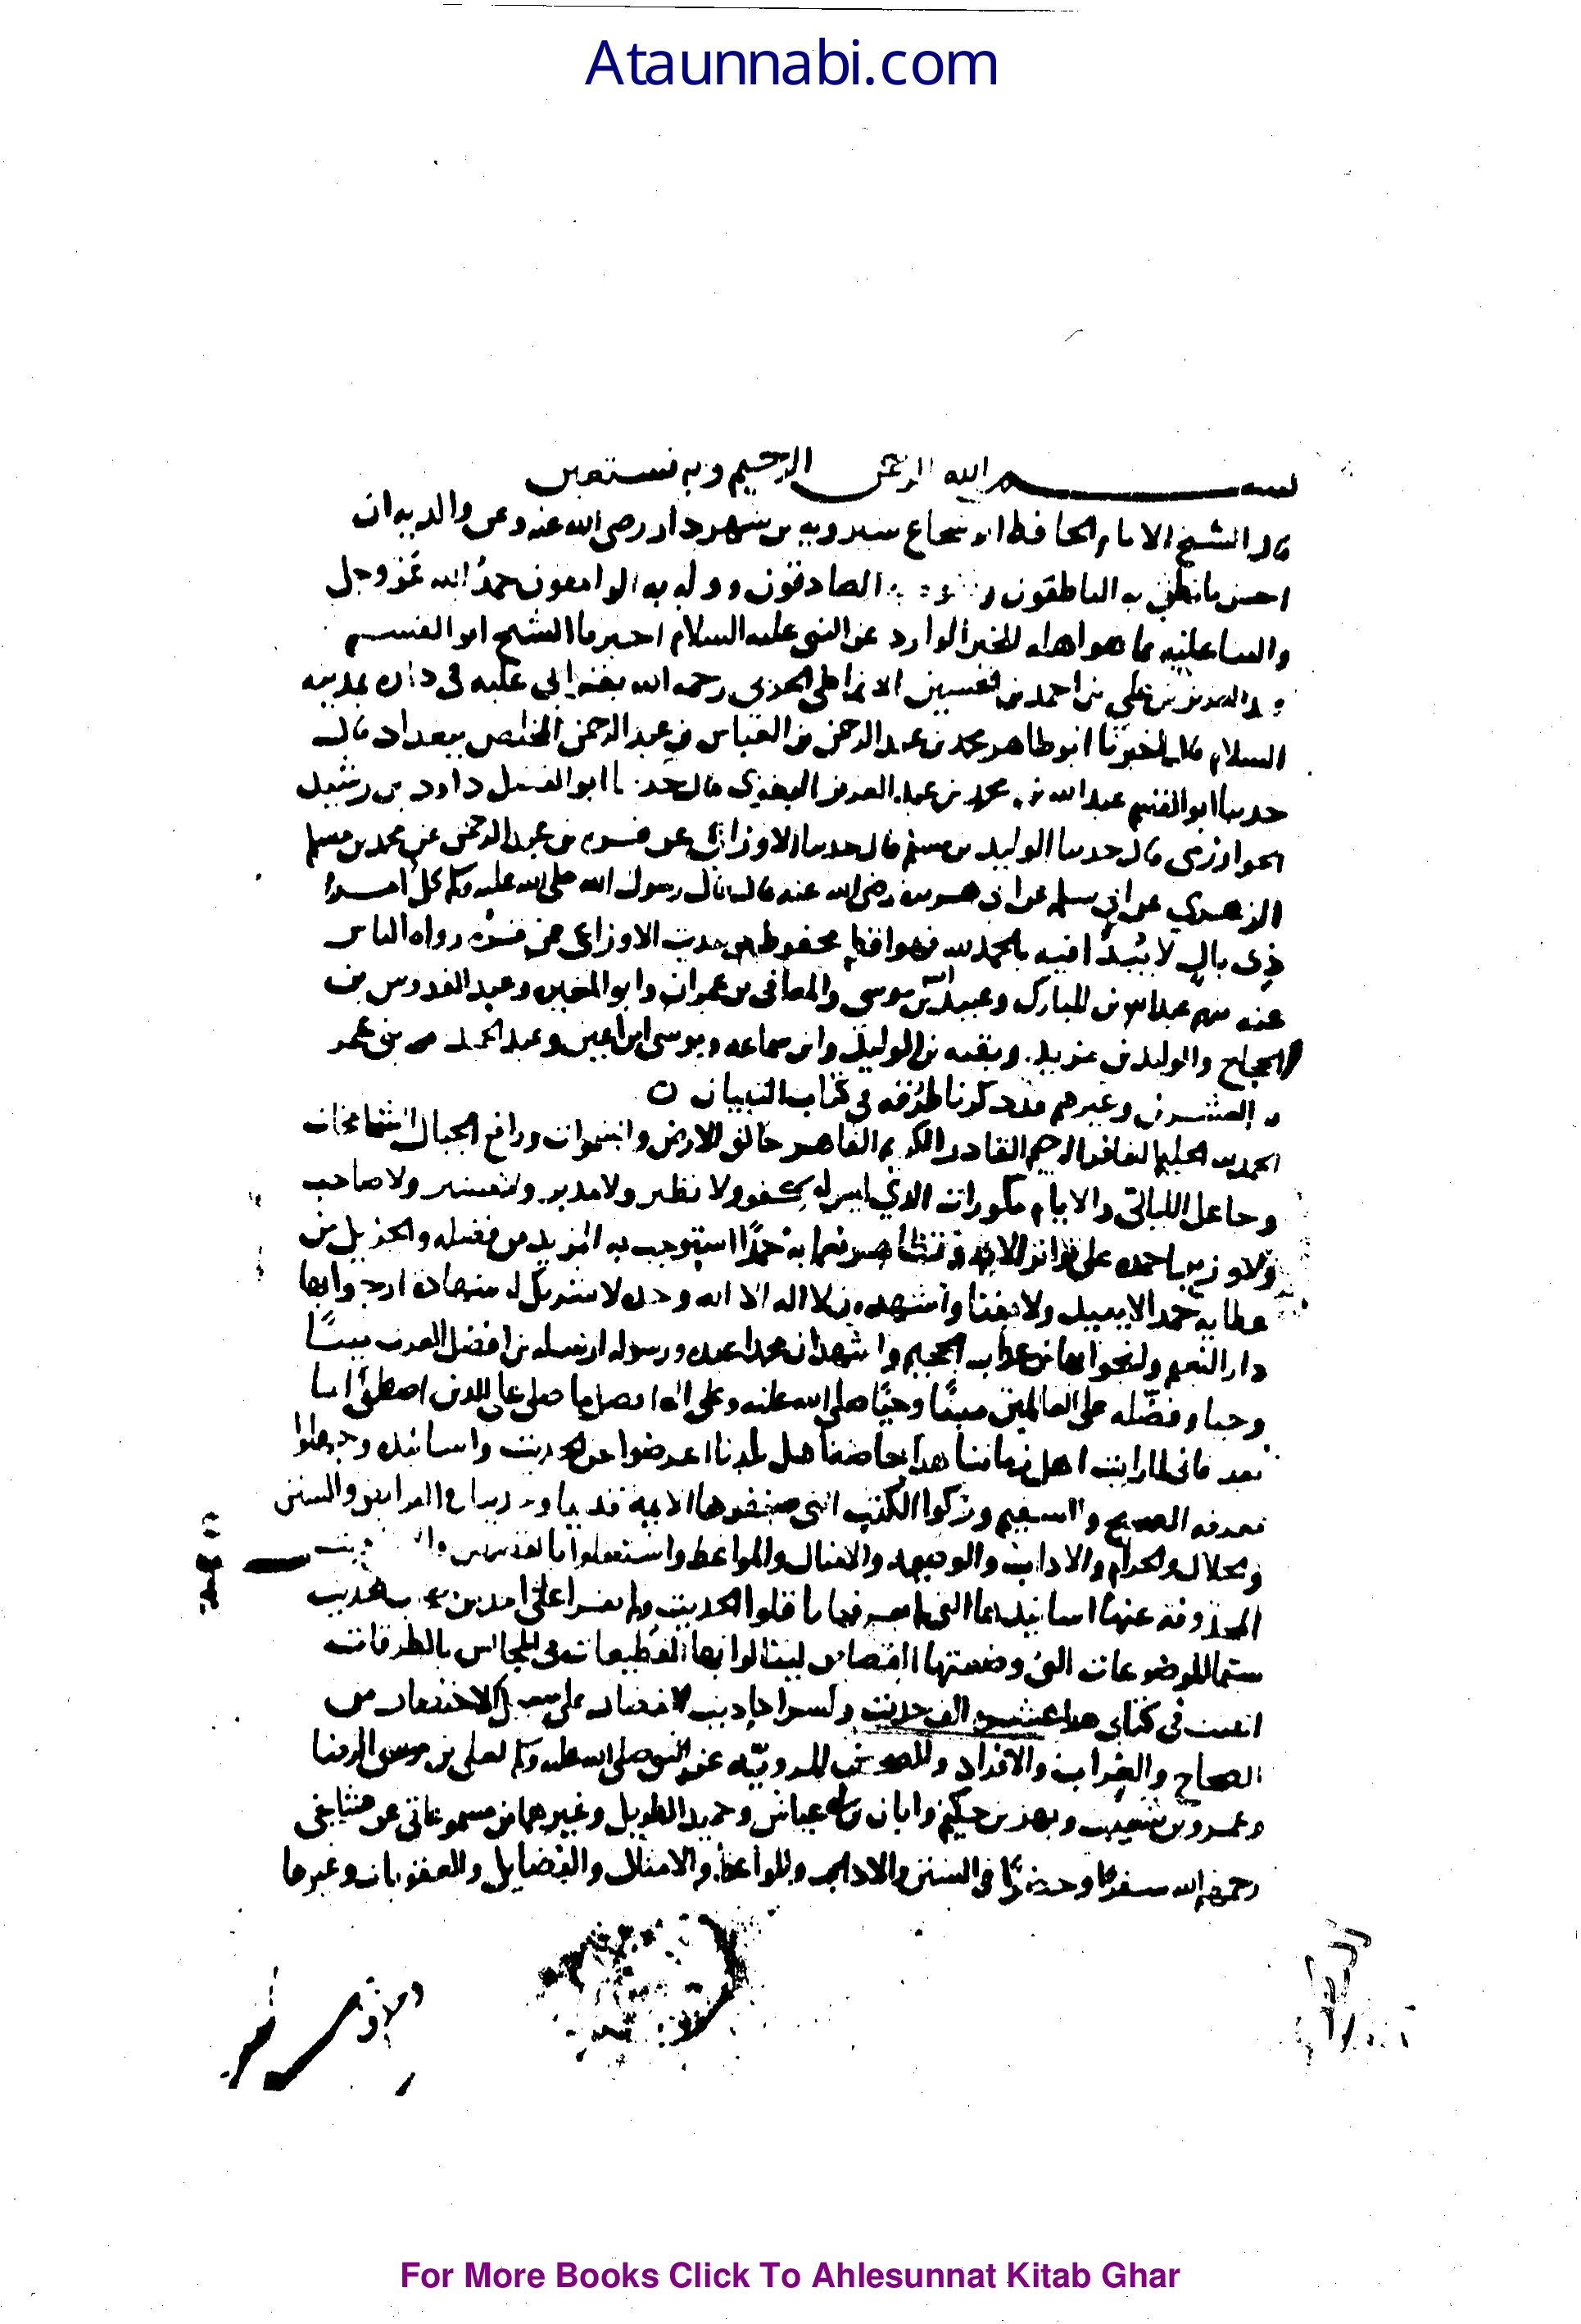 Ataunnabi.com
بسم الله الرحمن الرحيم وبه نستعين
قال الشيخ الامام الحافظ ابو شجاع شيرويه بن شهردار رضى الله عنه وعن والديه ان
احسن ما نطق به الناطقون الصادقون ووله به الوامقون حمد الله عز وجل
والثنا عليه بما هو اهله للخبر الوارد عن النبى عليه السلام اخبرنا الشيخ ابو القسم
عبد العزيز بن علي بن احمد بن الحسين الانماطى رحمه الله بقراتي عليه فى داره بمدينه
السلام قال اخبرنا ابو طاهر محمد بن عبد الرحمن بن العباس بن عبد الرحمن المخلص ببغداد قال
حدثنا ابو القسم عبد الله بن محمد بن عبد العزيز البغوي قال حدثنا ابو الفضل داود بن رشيد
الخوارزمى قال حدثنا الوليد بن مسلم قال حدثنا الاوزاعى عن قره بن عبد الرحمن عن محمد بن مسلم
الزهري عن ابي سلمه عن ابى هريره رضى الله عنه قال قال رسول الله صلى الله عليه وسلم كل امر
ذي بال لا يبدأ فيه بالحمد لله فهو اقطع محفوظ من حديث الاوزاعى عن قره رواه الناس
عنه منهم عبد الله بن المبارك وعبيد الله بن موسى والمعافى بن عمران وابو المغيره وعبد القدوس بن
الحجاج والوليد بن مزيد وبقيه بن الوليد وابن سماعه وموسى ابن اعين وعبد الحميد
بن العشرين وغيرهم قد ذكرنا طرقه فى كتاب التبيان
الحمد لله الحليم الغافر الرحيم القادر القاهر خالق الارض والسموات ورافع الجبال الشامخات
وجاعل الليالى والايام مكورات الذي ليس له كفو ولا نظير ولا مدبر ولا صاحب
ولا وزير احمده على تواتر الايه وتظاهر نعمايه حمدا استوجب به المزيد من فضله والجزيل من
عطايه حمدا لا يبيد ولا يفنا واشهد ان لا اله الا الله وحده لا شريك له شهادة ارجو ابها
دار النعيم وانجو ابها من عذاب الجحيم واشهد ان محمدا عبده ورسوله ارسله من افضل العرب بيتا
وحيا وفضله على العالمين ميتا وحيا صلى الله عليه وعلى اله افضل ما صلى على الذين اصطفى اما
بعد فانى لما رايت اهل زماننا هذا خاصة اهل بلدنا اعرضوا عن الحديث واسانيده وجهلوا
معرفه الصحيح والسقيم وتركوا الكتب التى صنفها الايمه قديما وحديثا فى الفرايض والسنن
والحلال والحرام والاداب والوصيه والامثال والمواعظ واشتغلوا بالقصص
المحذوفه عنها اسانيدها التى لم يعرفها ناقلوا الحديث ولم تقرا على احد من اصحاب الحديث
سيما الموضوعات التى وضعتها القصاص لينالوا بها القطيعات فى المجالس بالطرقات
اثبت فى كتابى هذا عشره الف حديث على سبيل الاختصار من
الصحاح والغرايب والافراد والصحف المرويه عن النبى صلى الله عليه وسلم لعلى بن موسى الرضا
وعمرو بن شعيب وبهز بن حكيم وابان بن ابي عياش وحميد الطويل وغيرهما من مسموعاتى عن مشايخى
رحمهم الله سفرا وحضرا فى السنن والاداب والمواعظ والامثال والفضايل والعقوبات وغيرها
For More Books Click To Ahlesunnat Kitab Ghar